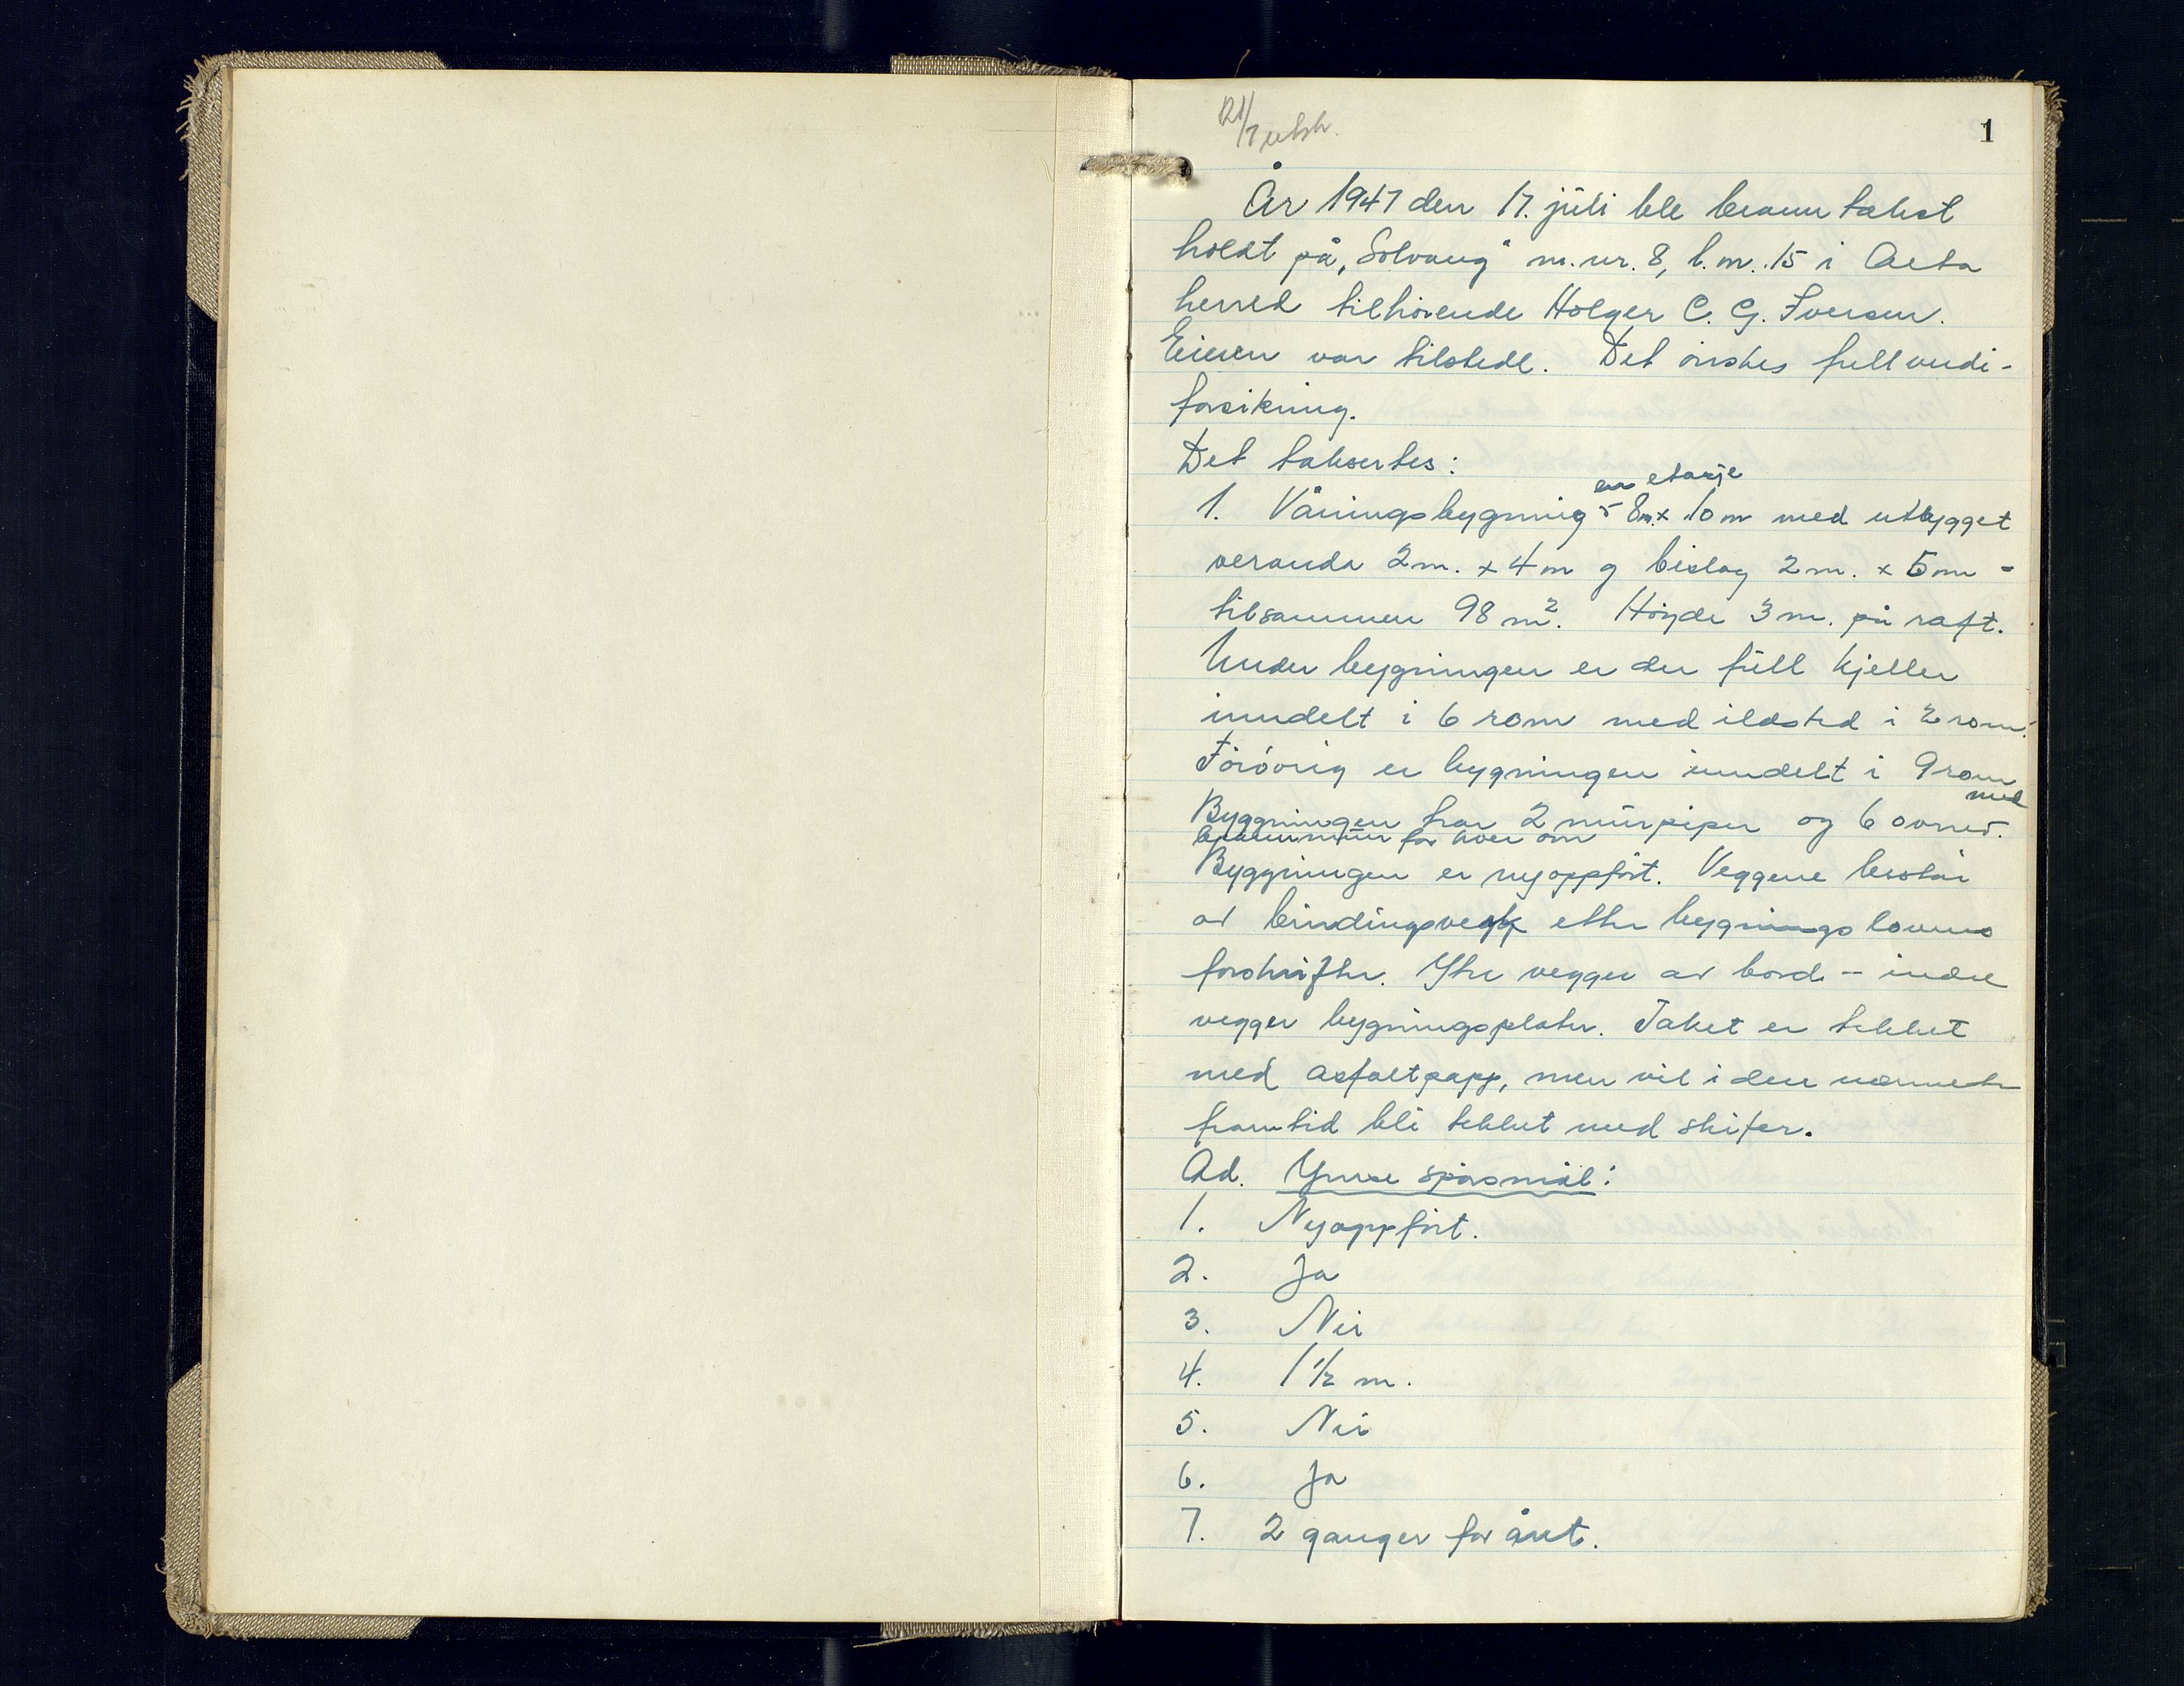 1
År 1947 den 17. juli ble branntakst
holdt på „Solvang" m.nr. 8, b.nr. 15 i Alta
herred tilhørende Holger C. G. Iversen.
Eieren var tilstede. Det ønskes fullverdi-
forsikring.
Det taksertes:
en etasje
1. Våningsbygning 8m. x 10m med utbygget
veranda 2m. x 4m og bislag 2m. x 5m -
tilsammen 98 m². Høyde 3m. på raft.
Under bygningen er der full kjeller
inndelt i 6 rom med ildsted i 2 rom.
Forøvrig er bygningen inndelt i 9 rom
Byggningen har 2 murpiper og 6 ovner. med
brannmur for hver ovn
Byggningen er nyoppført. Veggene består
av bindingsverk etter bygningslovens
forskrifter. Ytre vegger av bord - indre
vegger bygningsplater. Taket er tekket
med asfaltpapp, men vil i den nærmeste
framtid bli tekket med skifer.
Ad. Ymse spørsmål:
1. Nyoppført.
2. Ja
3. Nei
4. 1 1/2 m.
5. Nei
6. Ja
7. 2 ganger for året.